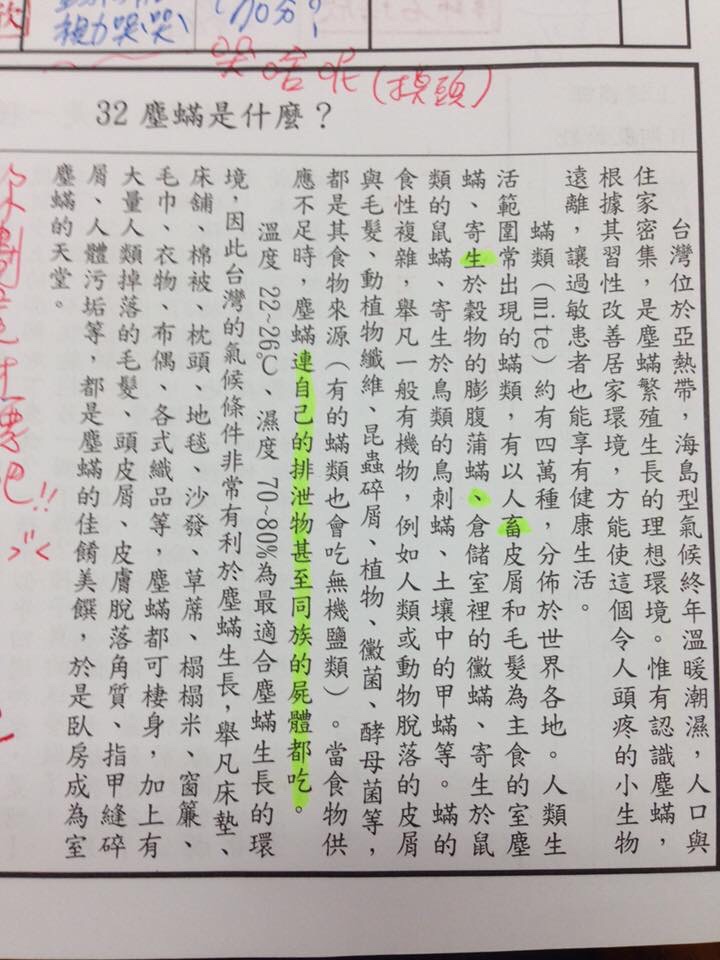 哭啥呢(摸頭)
32 塵蟎是什麼？
台灣位於亞熱帶，海島型氣候終年溫暖潮濕，人口與
住家密集，是塵蟎繁殖生長的理想環境。惟有認識塵蟎，
根據其習性改善居家環境，方能使這個令人頭疼的小生物
遠離，讓過敏患者也能享有健康生活。
蟎類（mite）約有四萬種，分佈於世界各地。人類生
活範圍常出現的蟎類，有以人畜皮屑和毛髮為主食的室塵
蟎、寄生於穀物的膨腹蒲蟎、倉儲室裡的黴蟎、寄生於鼠
類的鼠蟎、寄生於鳥類的鳥刺蟎、土壤中的甲蟎等。蟎的
食性複雜，舉凡一般有機物，例如人類或動物脫落的皮屑
與毛髮、動植物纖維、昆蟲碎屑、植物、黴菌、酵母菌等，
都是其食物來源（有的蟎類也會吃無機鹽類）。當食物供
應不足時，塵蟎連自己的排泄物甚至同族的屍體都吃。
溫度 22~26℃、濕度 70~80%為最適合塵蟎生長的環
境，因此台灣的氣候條件非常有利於塵蟎生長，舉凡床墊、
床舖、棉被、枕頭、地毯、沙發、草蓆、榻榻米、窗簾、
毛巾、衣物、布偶、各式織品等，塵蟎都可棲身，加上有
大量人類掉落的毛髮、頭皮屑、皮膚脫落角質、指甲縫碎
屑、人體污垢等，都是塵蟎的佳餚美饌，於是臥房成為室
塵蟎的天堂。